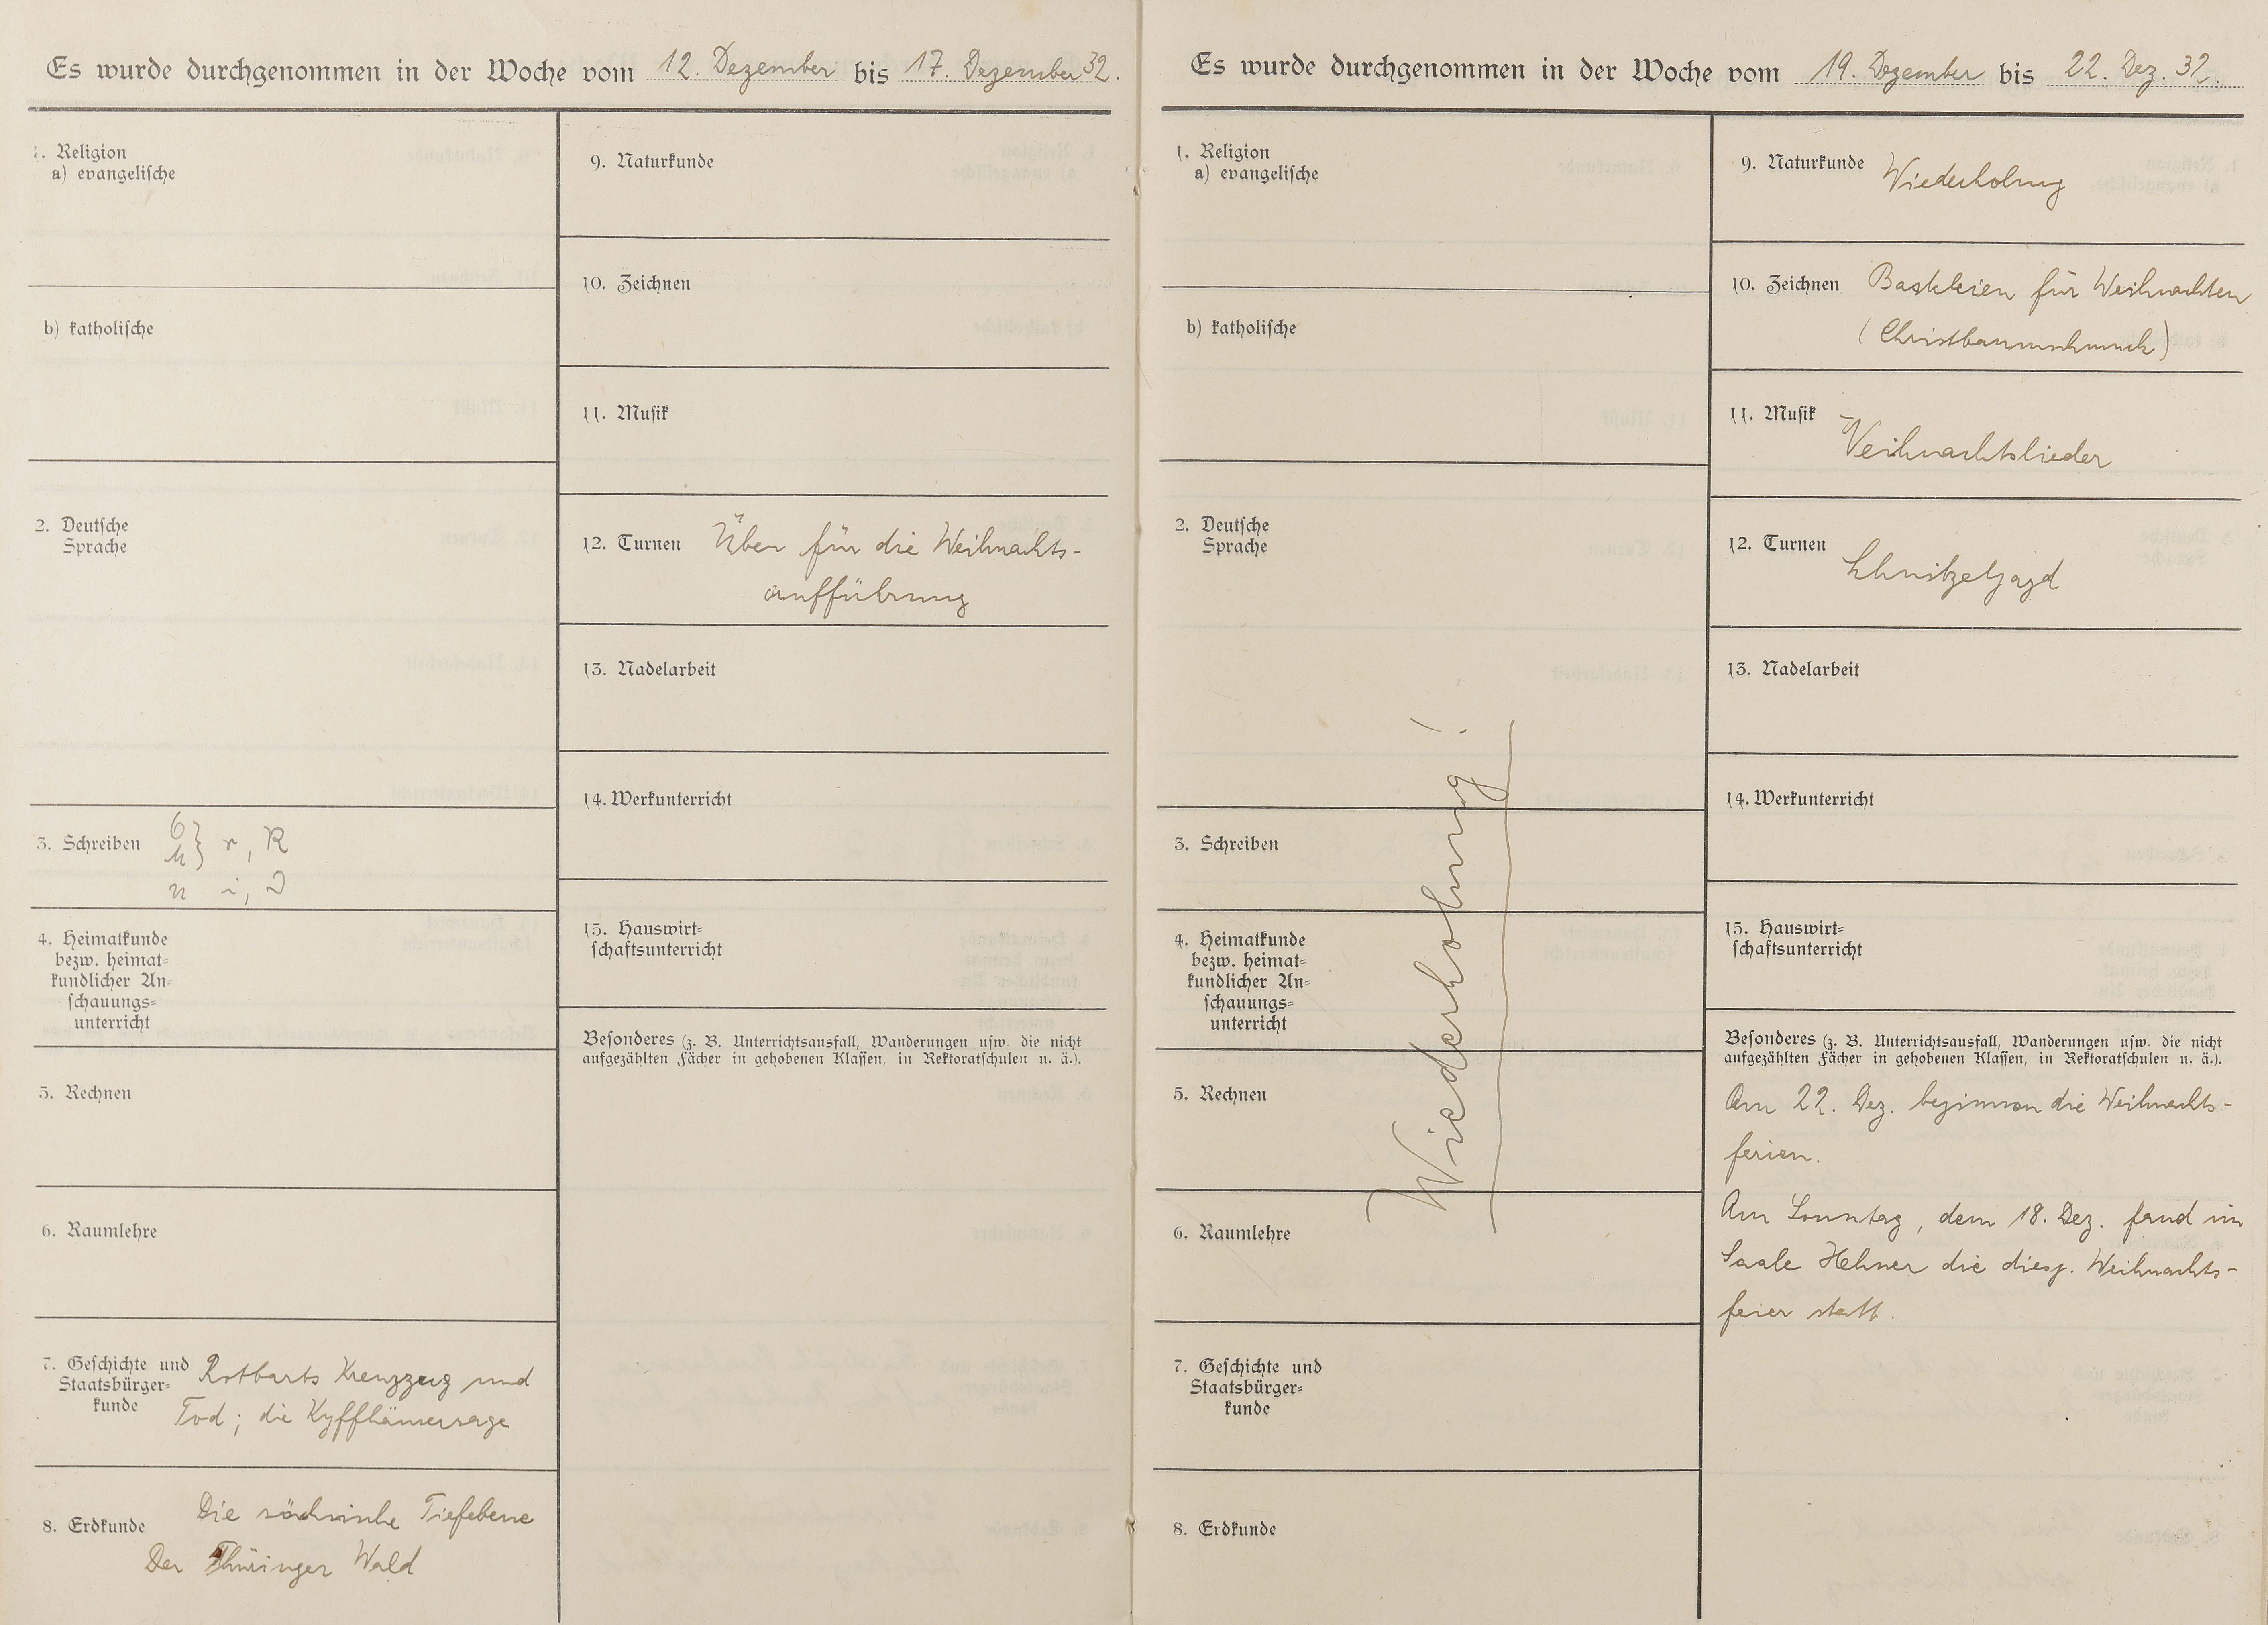 Es wurde durchgenommen in der Woche vom 12. Dezember bis 17. Dezember 32.
1. Religion
a) evangelische
b) katholische
2. Deutsche
Sprache
3. Schreiben r, R
i,
4. Heimatkunde
bezw. heimat=
kundlicher An=
schauungs=
unterricht
5. Rechnen
6. Raumlehre
7. Geschichte und Rotbarts Kreuzzug und
Staatsbürger=
kunde Tod; die Kyffhäusersage
8. Erdkunde Die sächsische Tiefebene
Der Thüringer Wald
9. Naturkunde
10. Zeichnen
11. Musik
12. Turnen Üben für die Weihnachts-
aufführung
13. Nadelarbeit
14. Werkunterricht
15. Hauswirt=
schaftsunterricht
Besonderes (z. B. Unterrichtsausfall, Wanderungen usw. die nicht
aufgezählten Fächer in gehobenen Klassen, in Rektoratschulen u. ä.).
Es wurde durchgenommen in der Woche vom 19. Dezember bis 22. Dez. 32.
1. Religion
a) evangelische
b) katholische
2. Deutsche
Sprache
3. Schreiben
4. Heimatkunde
bezw. heimat=
kundlicher An=
schauungs=
unterricht
5. Rechnen
6. Raumlehre
7. Geschichte und
Staatsbürger=
kunde
8. Erdkunde
Wiederholung!
9. Naturkunde Wiederholung
10. Zeichnen Basteleien für Weihnachten
(Christbaumschmuck)
11. Musik Weihnachtslieder
12. Turnen Schnitzeljagd
13. Nadelarbeit
14. Werkunterricht
15. Hauswirt=
schaftsunterricht
Besonderes (z. B. Unterrichtsausfall, Wanderungen usw. die nicht
aufgezählten Fächer in gehobenen Klassen, in Rektoratschulen u. ä.).
Am 22. Dez. beginnen die Weihnachts-
ferien.
Am Sonntag, dem 18. Dez. fand im
Saale Hehner die diesj. Weihnachts-
feier statt.